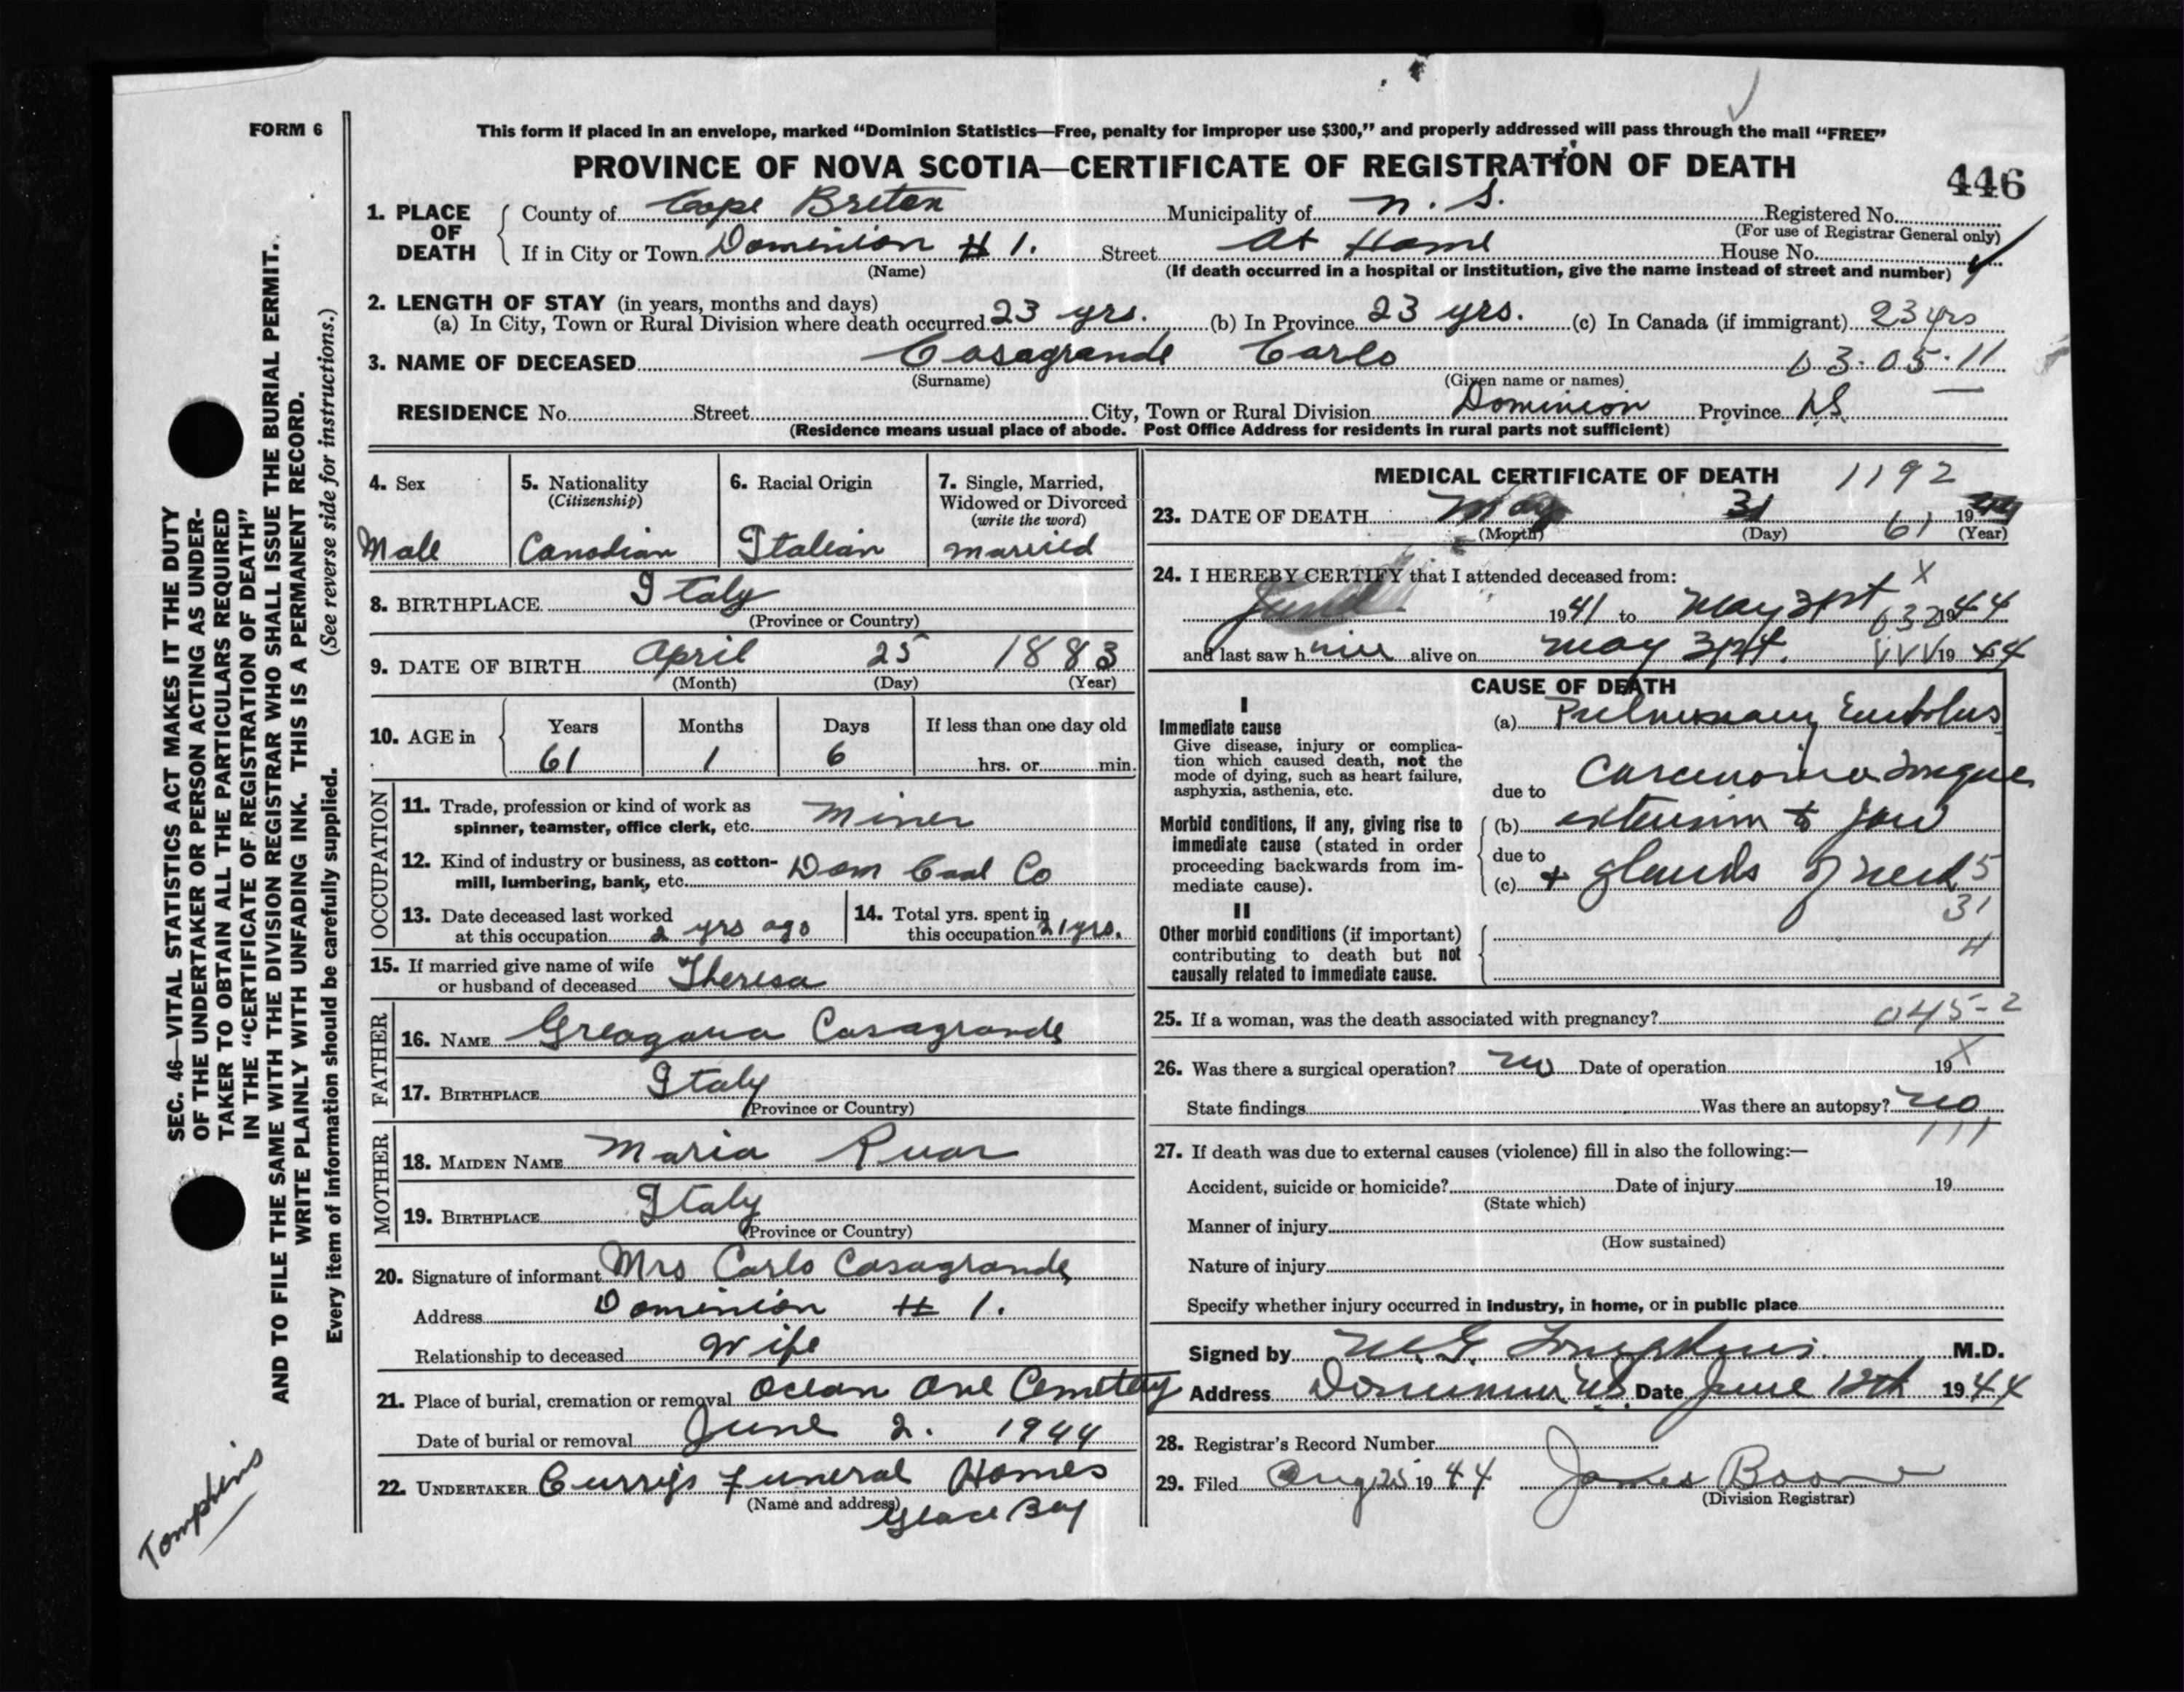 FORM 6
This form if placed in an envelope, marked “Dominion Statistics—Free, penalty for improper use $300,” and properly addressed will pass through the mail “FREE”
PROVINCE OF NOVA SCOTIA—CERTIFICATE OF REGISTRATION OF DEATH
446
1. PLACE OF DEATH
County of Cape Breton Municipality of N. S. Registered No.
(For use of Registrar General only)
If in City or Town Dominion # 1. Street At Home House No.
(Name) (If death occurred in a hospital or institution, give the name instead of street and number)
2. LENGTH OF STAY (in years, months and days)
(a) In City, Town or Rural Division where death occurred 23 yrs. (b) In Province 23 yrs. (c) In Canada (if immigrant) 23 yrs
3. NAME OF DECEASED Casagrande Carlo 03-05-11
(Surname) (Given name or names)
RESIDENCE No. Street City, Town or Rural Division Dominion Province NS
(Residence means usual place of abode. Post Office Address for residents in rural parts not sufficient)
4. Sex
Male
5. Nationality
(Citizenship)
Canadian
6. Racial Origin
Italian
7. Single, Married,
Widowed or Divorced
(write the word)
married
8. BIRTHPLACE Italy
(Province or Country)
9. DATE OF BIRTH April 25 1883
(Month) (Day) (Year)
10. AGE in
Years Months Days If less than one day old
61 1 6 hrs. or min.
OCCUPATION
11. Trade, profession or kind of work as
spinner, teamster, office clerk, etc. Miner
12. Kind of industry or business, as cotton-
mill, lumbering, bank, etc. Dom Coal Co
13. Date deceased last worked
at this occupation 2 yrs ago
14. Total yrs. spent in
this occupation 21 yrs.
15. If married give name of wife
or husband of deceased Theresa
FATHER
16. NAME Casagrande
17. BIRTHPLACE Italy
(Province or Country)
MOTHER
18. MAIDEN NAME Maria
19. BIRTHPLACE Italy
(Province or Country)
20. Signature of informant Mrs Carlo Casagrande
Address Dominion # 1.
Relationship to deceased Wife
21. Place of burial, cremation or removal Ocean Ave Cemetery
Date of burial or removal June 2. 1944
22. UNDERTAKER Curry's Funeral Homes
(Name and address)
Glace Bay
MEDICAL CERTIFICATE OF DEATH 1192
23. DATE OF DEATH May 31 1944
(Month) (Day) 61 (Year)
24. I HEREBY CERTIFY that I attended deceased from: X
June 1941 to May 31st 1944
632
and last saw him alive on May 31st. 1944
CAUSE OF DEATH
I
Immediate cause
Give disease, injury or complica-
tion which caused death, not the
mode of dying, such as heart failure,
asphyxia, asthenia, etc.
(a) Pulmonary Embolus
due to Carcinoma Tongue
Morbid conditions, if any, giving rise to
immediate cause (stated in order
proceeding backwards from im-
mediate cause).
(b) extension to Jaw
due to
(c) + glands of neck 5
31
4
II
Other morbid conditions (if important)
contributing to death but not
causally related to immediate cause.
25. If a woman, was the death associated with pregnancy? 045-2
26. Was there a surgical operation? no Date of operation 19 X
State findings Was there an autopsy? no
111
27. If death was due to external causes (violence) fill in also the following:—
Accident, suicide or homicide? Date of injury 19
(State which)
Manner of injury
(How sustained)
Nature of injury
Specify whether injury occurred in industry, in home, or in public place
Signed by M.G. Tompkins. M.D.
Address Dominion N.S. Date June 12th 1944
28. Registrar's Record Number
29. Filed Aug 25 1944 James Boone
(Division Registrar)
SEC. 46—VITAL STATISTICS ACT MAKES IT THE DUTY
OF THE UNDERTAKER OR PERSON ACTING AS UNDER-
TAKER TO OBTAIN ALL THE PARTICULARS REQUIRED
IN THE “CERTIFICATE OF REGISTRATION OF DEATH”
AND TO FILE THE SAME WITH THE DIVISION REGISTRAR WHO SHALL ISSUE THE BURIAL PERMIT.
WRITE PLAINLY WITH UNFADING INK. THIS IS A PERMANENT RECORD.
Every item of information should be carefully supplied. (See reverse side for instructions.)
Tompkins